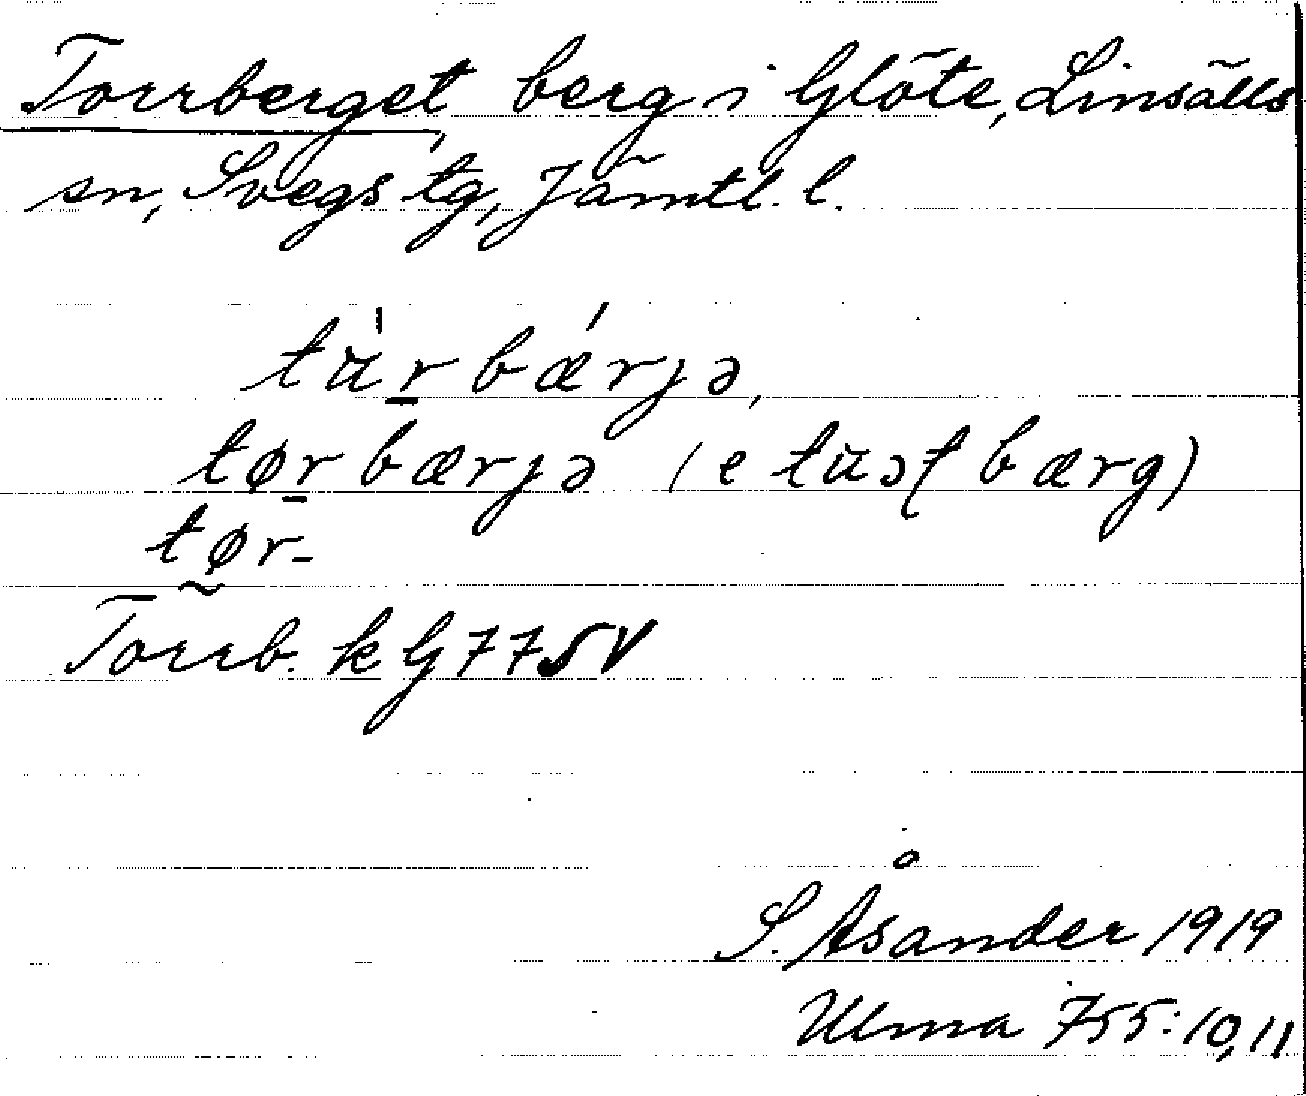 Torrberget, berg i Glöte, Linsälls
sn, Svegs tg, Jämtl. l.
tu̍r̲bǽrjə,
tør̲bærjə (e tuəʃbærg)
tø̰r-
Torrb. k G 77 SV
S. Åsander 1919
Ulma 755:10,11